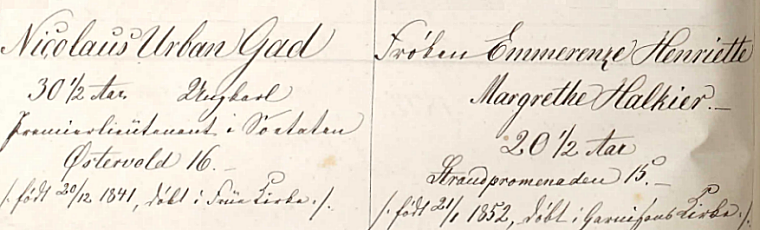 Nicolaus Urban Gad
30 1/2 Aar Ungkarl
Premierlieutenant i Søetaten
Østervold 16.-
/: født 20/12 1841, døbt i Frue Kirke :/.
Frøken Emmerenze Henriette
Margrethe Halkier.-
20 1/2 Aar
Strandpromenaden 15.-
/: født 21/1 1852, døbt i Garnisons Kirke :/.